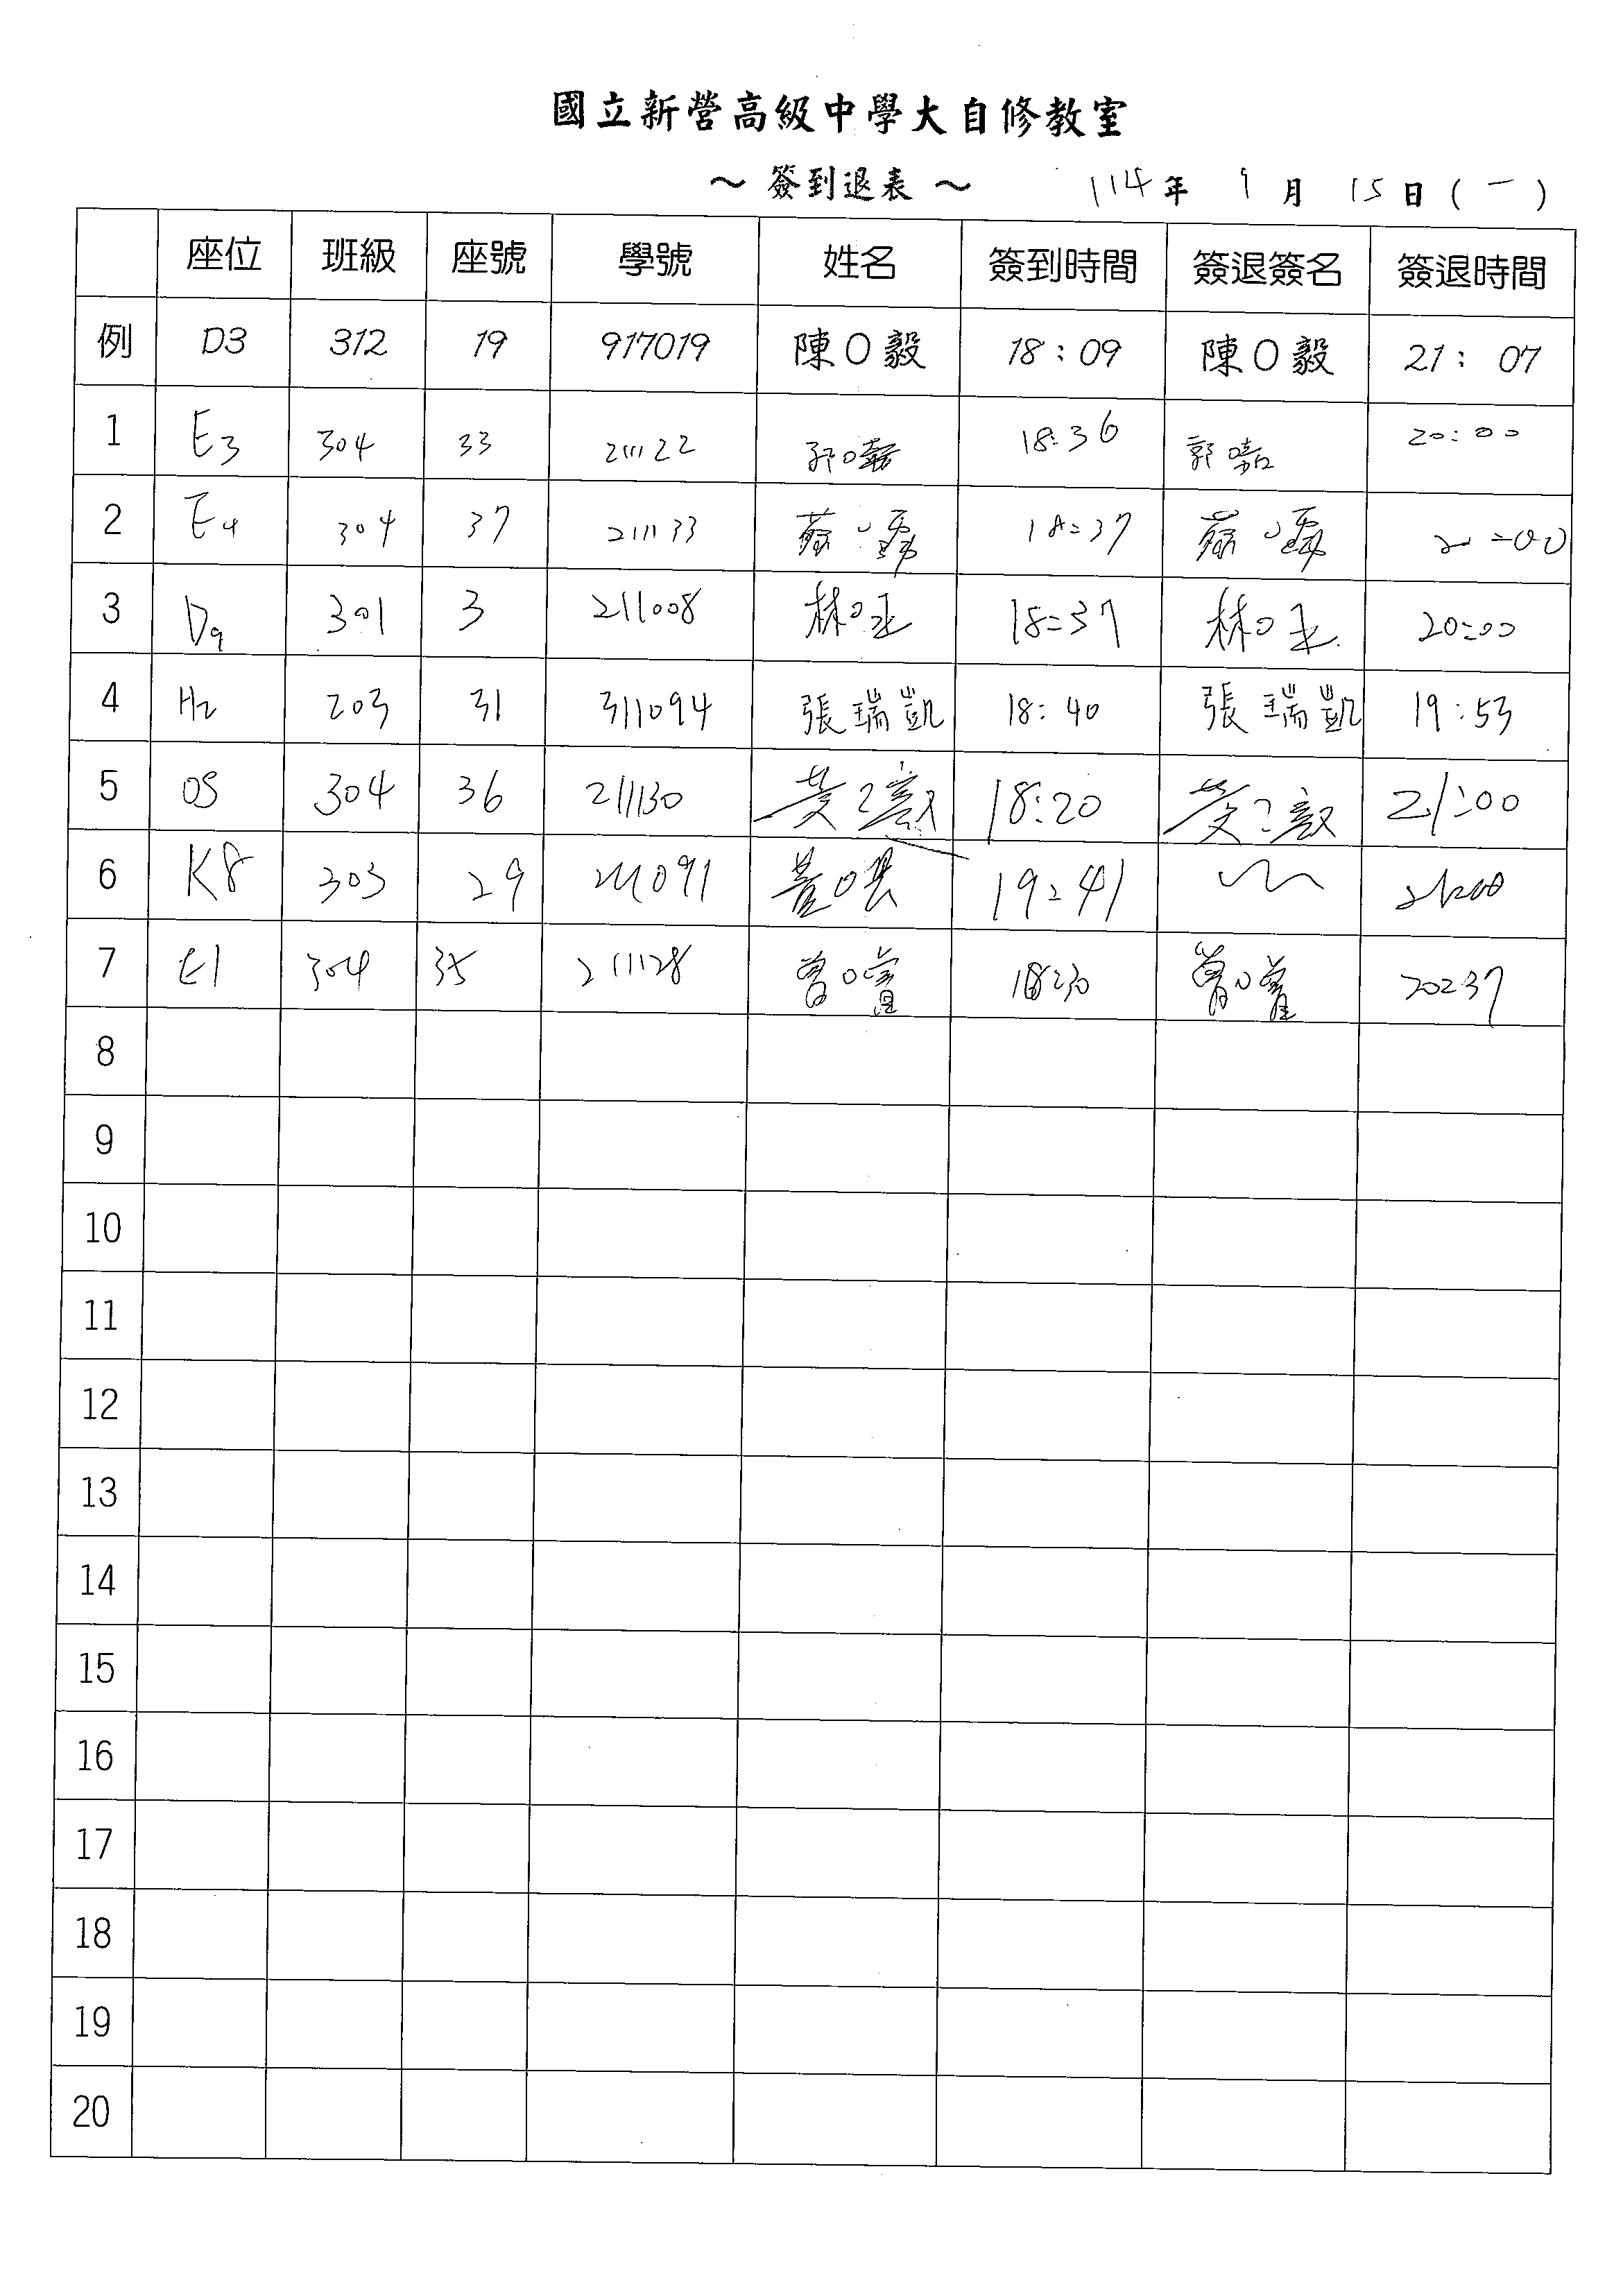 國立新營高級中學大自修教室
～ 簽到退表 ～ 114年 9月 15日(一)
座位 班級 座號 學號 姓名 簽到時間 簽退簽名 簽退時間
例 D3 312 19 917019 陳O毅 18:09 陳O毅 21:07
1 E3 304 33 211122 18:36 郭 20:00
2 E4 304 37 211133 蔡 18:37 蔡
3 D9 301 3 211008 林O丞 18:37 林O丞 20:00
4 H2 203 31 311094 張瑞凱 18:40 張瑞凱 19:53
5 304 36 211130 18:20 21:00
6 K8 303 29 211091 19:41
7 E1 304 35 211128 曾 18:30 曾 20:37
8
9
10
11
12
13
14
15
16
17
18
19
20